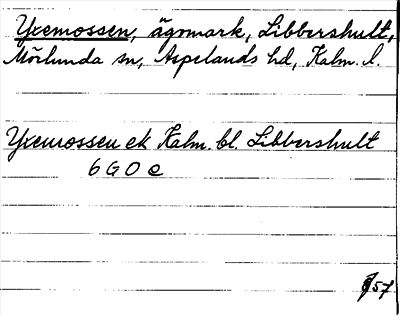 Yxemossen, ägomark, Libbershult,
Mörlunda sn, Aspelands hd, Kalm. l.
Yxemossen ek Kalm. bl. Libbershult
6 G 0 e
57